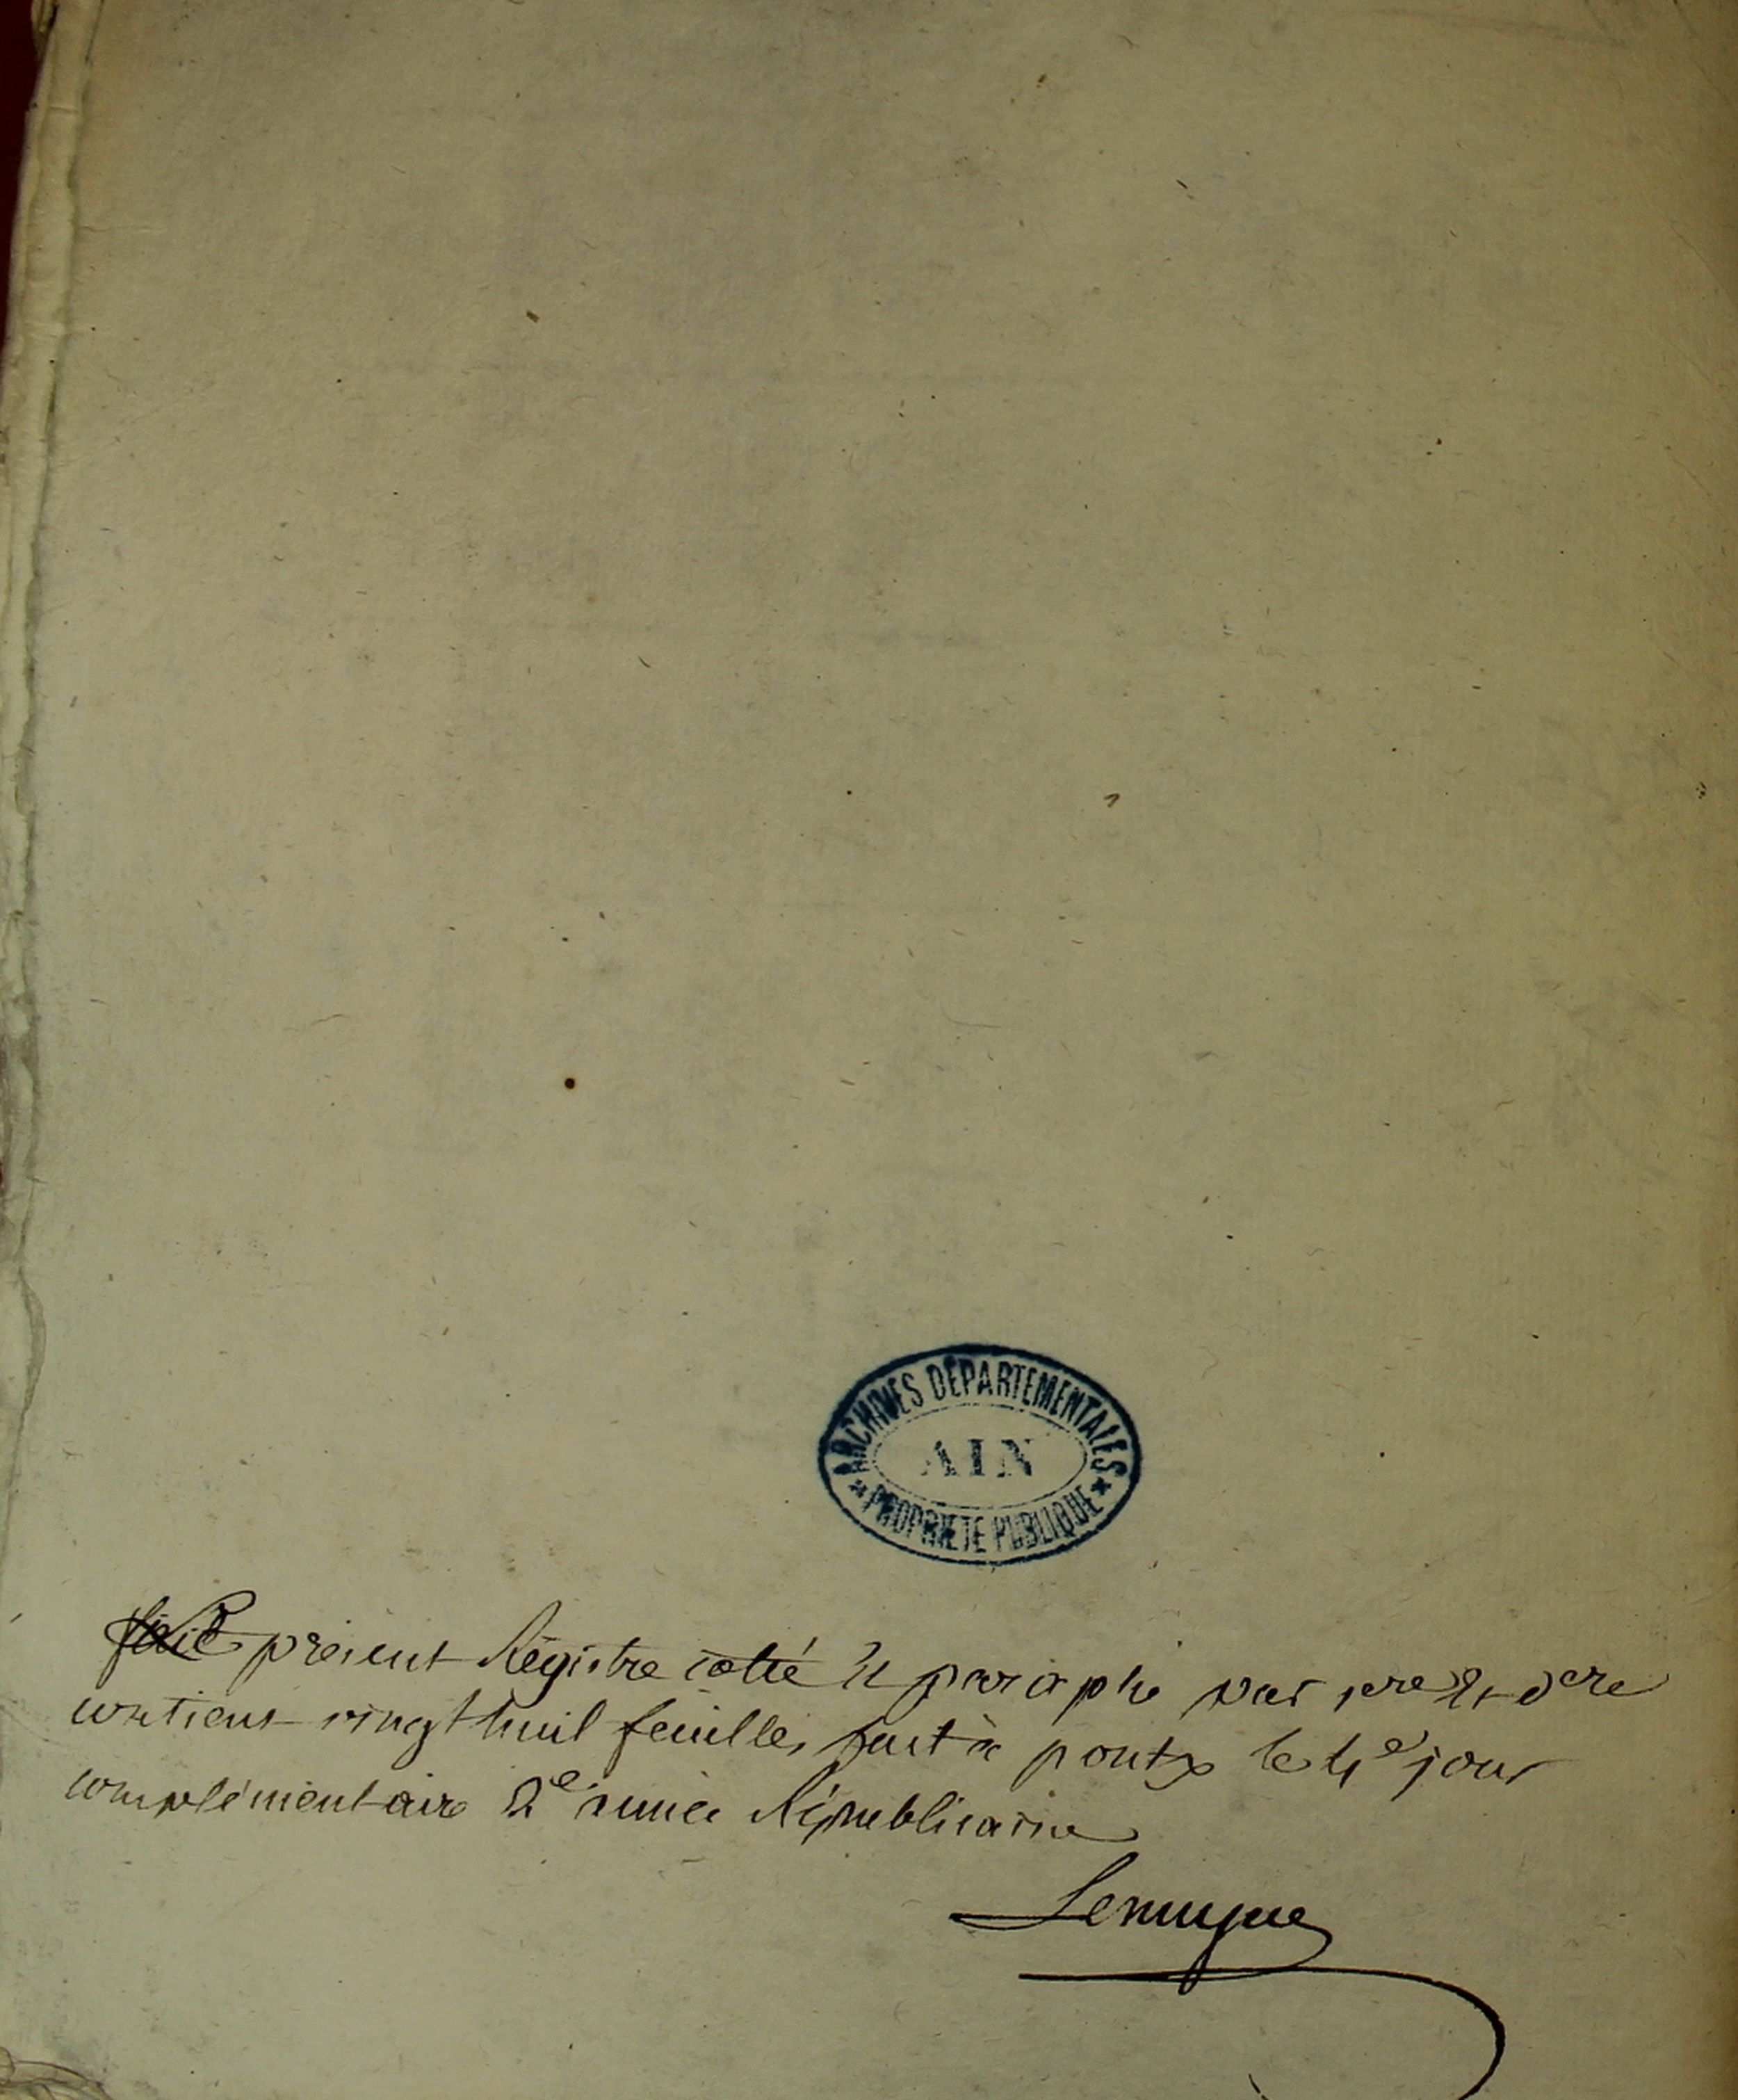 ARCHIVES DÉPARTEMENTALES
AIN
PROPRIÉTÉ PUBLIQUE
présent Régistre cotté et paraphé par 1ere et dere
contient vingt huit feuilles fait à pontx le 4e jour
complémentaire 2e année Républicaine